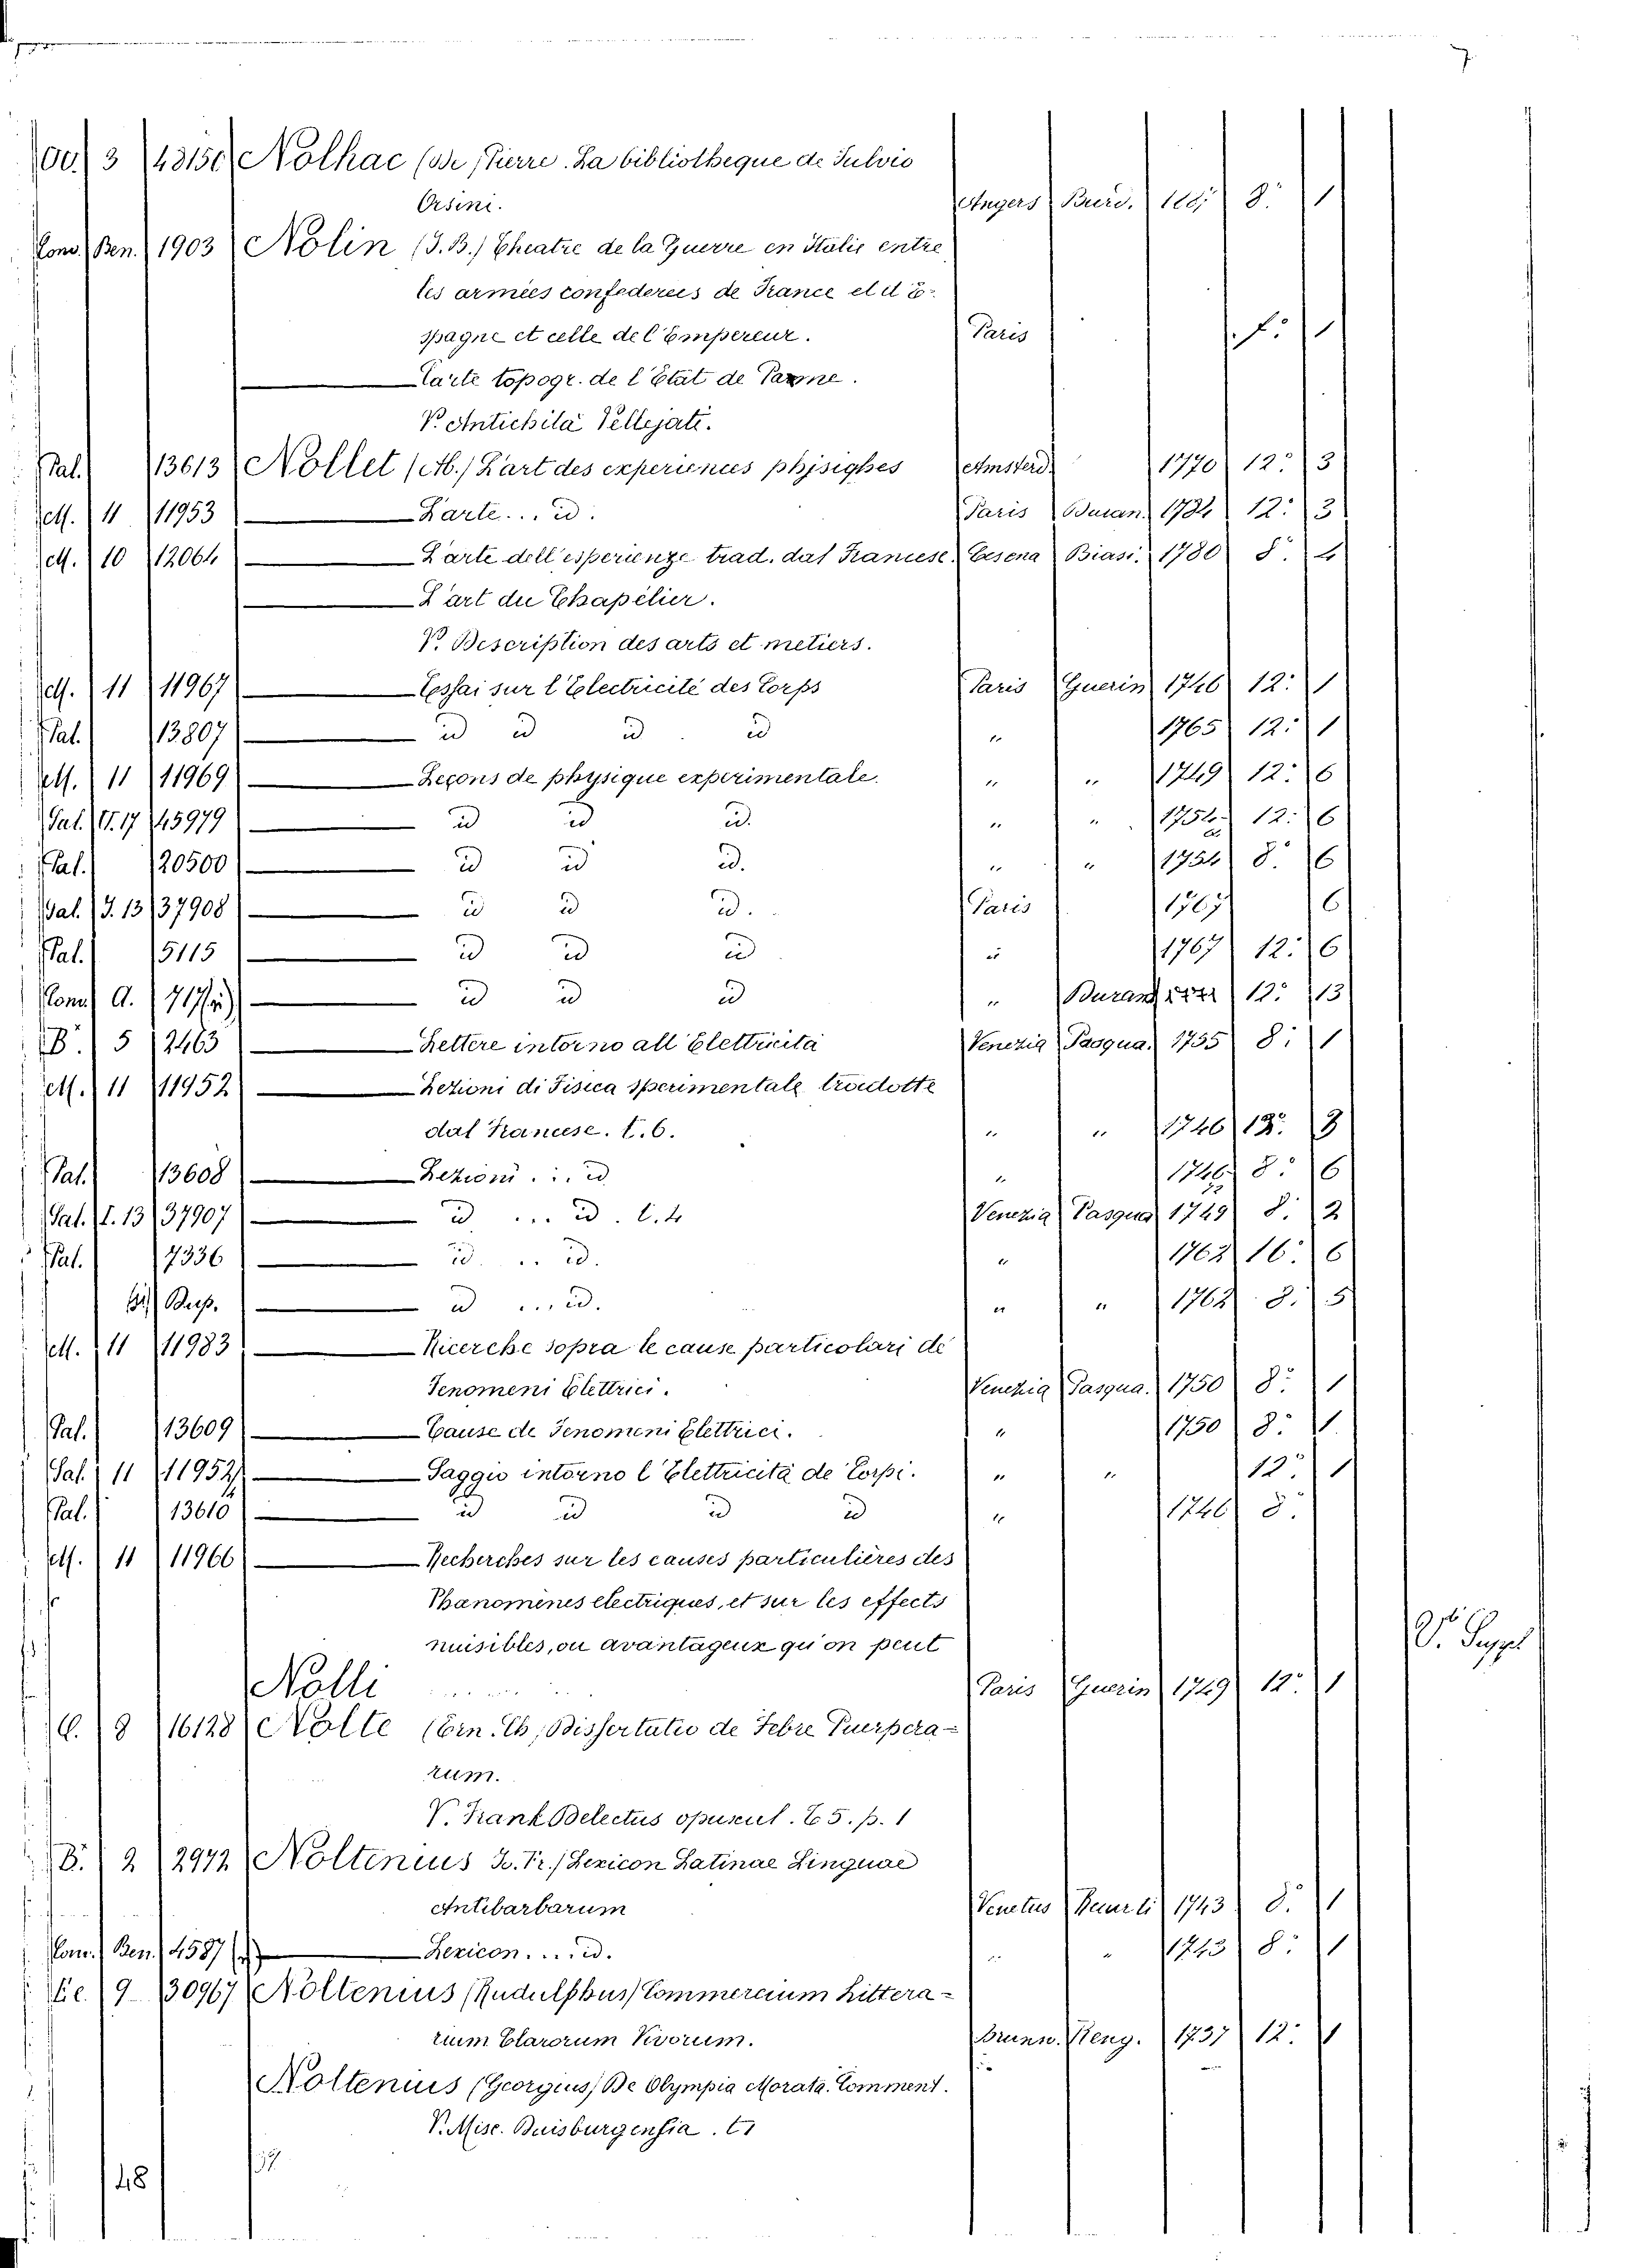 OO. 3 43150 Nolhac (de) Pierre. La bibliotheque de Fulvio
Orsini. Angers Burd. 8.° 1
Com. Ben. 1903 Nolin (J. B.) Theatre de la Guerre en Italie entre
les armées confederées de France et d'E-
spagne et celle de l'Empereur. Paris f.° 1
Carte topogr. de l'Etat de Parme.
V. Antichità Vellejati.
Pal. 13613 Nollet (Ab.) L'art des experiences phisighes Amsterd. 1770 12.° 3
M. 11 11953 L'arte... id. Paris Duran. 12.° 3
M. 10 12064 L'arte dell'esperienze trad. dal Francese. Cesena Biasi. 1780 8. 4
L'art du Chapelier.
V. Description des arts et metiers.
M. 11 11967 Essai sur l'Electricité des Corps Paris Guerin 1746 12.° 1
Pal. 13807 id id id id " 1765 12.° 1
M. 11 11969 Leçons de physique experimentale. " " 1749 12.° 6
Pal. T. 17 45979 id id id. " " 1754 12.° 6
Pal. 20500 id id id. " " 1754 8.° 6
Pal. J. 13 37908 id id id. Paris 1767 6
Pal. 5115 id id id " 1767 12.° 6
Com. A. 717 id id id " Durand 12.° 13
B. 5 2463 Lettere intorno all'Elettricità Venezia Pasqua. 1755 8.° 1
M. 11 11952 Lezioni di Fisica sperimentale tradotte
dal Francese. t. 6. " " 1746 12.° 3
Pal. 13608 Lezioni... id " 1746 8.° 6
Pal. I. 13 37907 id ... id. t. 4 Venezia Pasqua 1749 8.° 2
Pal. 7336 id. .. id. " 1762 16.° 6
Dup. id .... id. " " 1762 8.° 5
M. 11 11983 Ricerche sopra le cause particolari de'
Fenomeni Elettrici. Venezia Pasqua. 1750 8.° 1
Pal. 13609 Cause de Fenomeni Elettrici. " 1750 8.° 1
Pal. 11 11952 Saggio intorno l'Elettricità de Corpi. " " 12.° 1
Pal. 13610 id id id id " 1746 8.
M. 11 11966 Recherches sur les causes particulières des
Phanomènes electriques, et sur les effects
nuisibles, ou avantageux qu'on peut
Nolli Paris Guerin 1749 12.° 1
V. Suppl
C. 8 16128 Nolte (Ern. Ch.) Dissertatio de Febre Puerpera-
rum.
V. Frank Delectus opuscul. t. 5. p. 1
B. 2 2972 Noltenius Jo. Fr.) Lexicon Latinae Linguae
Antibarbarum Venetus 1743 8.° 1
Com. Ben. 4587 Lexicon..... id. " 1743 8.° 1
9 30967 Noltenius (Rudulphus) Commercium Littera-
rium Clarorum Virorum. Brunsv. Reng. 1737 12.° 1
Noltenius (Georgius) De Olympia Morata. Comment.
V. Misc. Duisburgensia. t. 1
48